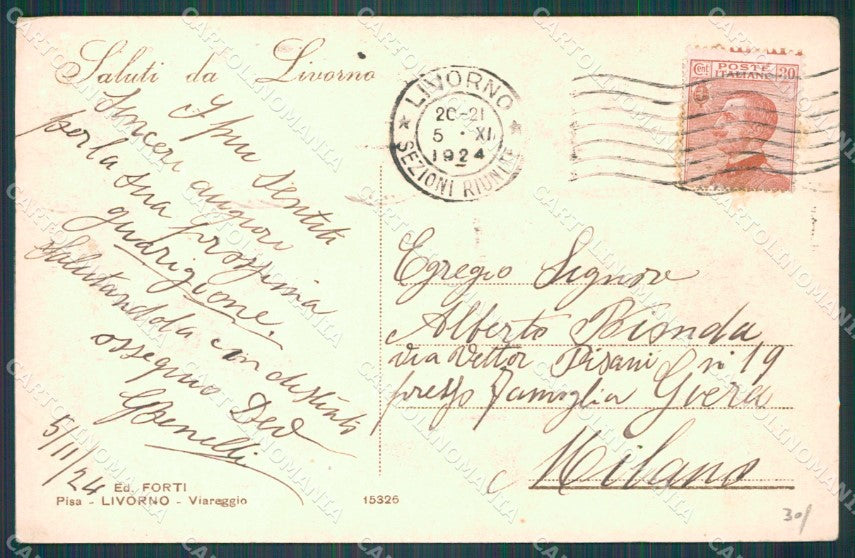 Saluti da Livorno
I più sentiti
sinceri auguri
per la sua prossima
guarigione.
Salutandola con distinto
ossequio Dev
GBenelli
5/11/24
Ed. FORTI
Pisa - LIVORNO - Viareggio
15326
LIVORNO
20-21
5 · XI
1924
SEZIONI RIUNITE
Cent POSTE 30
ITALIANE
Egregio Signore
Alberto Bionda
Via Vettor Pisani n° 19
presso Famiglia Giera
Milano
30/
CARTOLINOMANIA